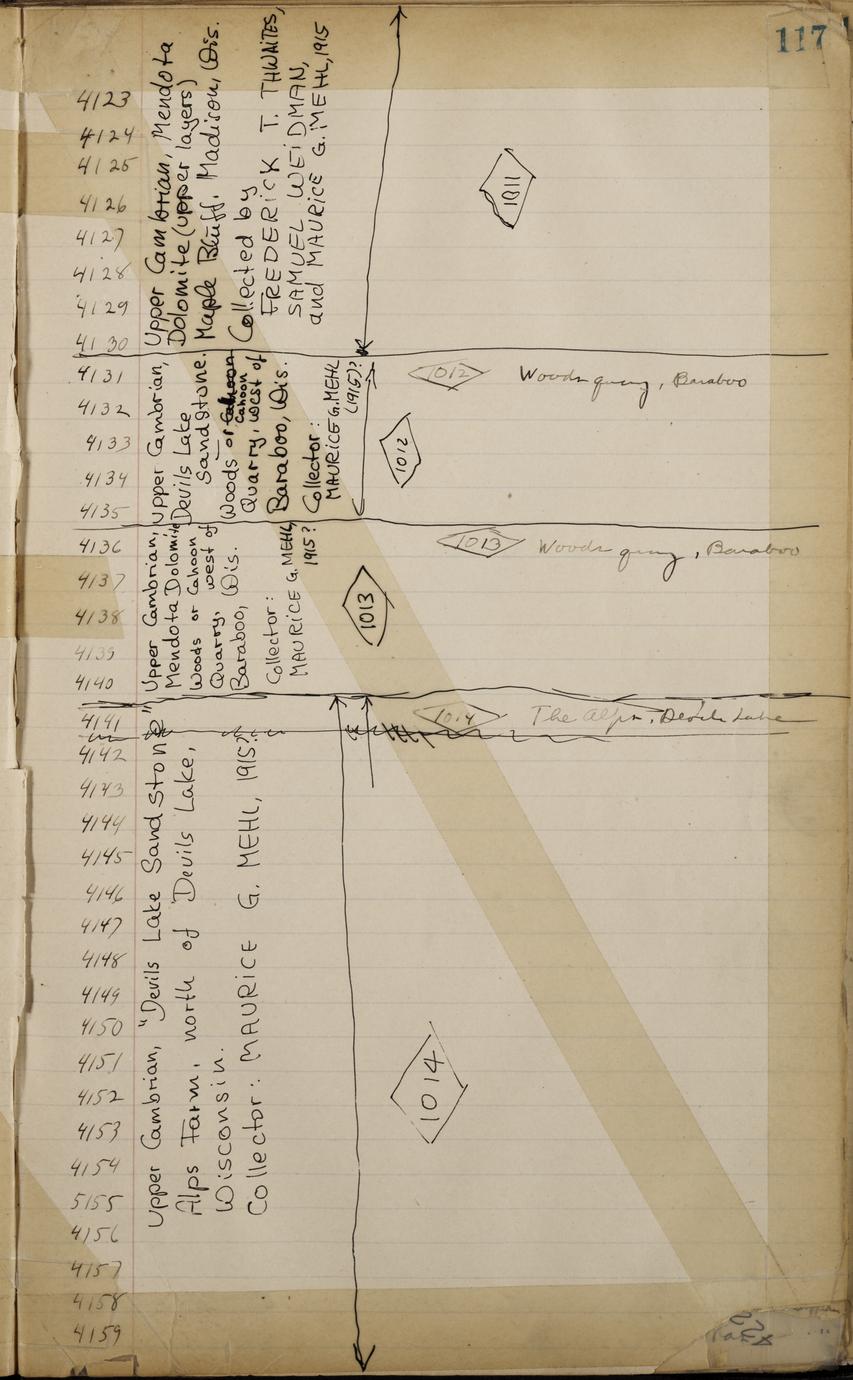 117
4123
4124
4125
4126
4127
4128
4129
4130
Upper Cambrian, Mendota
Dolomite (upper layers)
Maple Bluff, Madison, Wis.
Collected by
FREDERICK T. THWAITES,
SAMUEL WEIDMAN,
and MAURICE G. MEHL, 1915
1011
4131
4132
4133
4134
4135
Upper Cambrian,
Devils Lake
Sandstone.
Woods or Cahoon
Cahoon
Quarry, west of
Baraboo, Wis.
Collector:
MAURICE G. MEHL
(1915)?
1012
1012 Woods quarry, Baraboo
4136
4137
4138
4139
4140
Upper Cambrian,
Mendota Dolomite
Woods or Cahoon
Quarry, west of
Baraboo, Wis.
Collector:
MAURICE G. MEHL,
1915?
1013
1013 Woods quarry, Baraboo
4141
4142
4143
4144
4145
4146
4147
4148
4149
4150
4151
4152
4153
4154
5155
4156
4157
4158
4159
1014 The Alps, Devils Lake
Upper Cambrian, "Devils Lake Sandstone"
Alps Farm, north of Devils Lake,
Wisconsin.
Collector: MAURICE G. MEHL, 1915?
1014